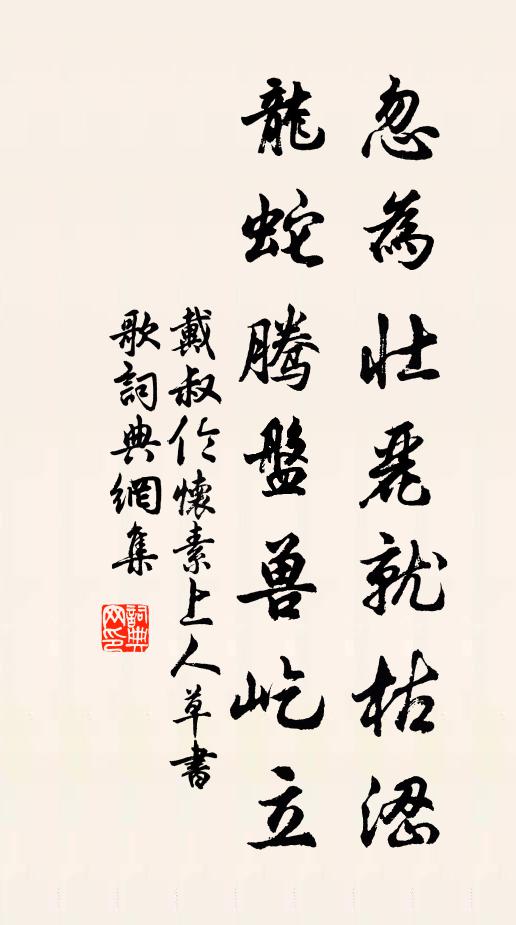 忽為壮麗就枯澀
龍蛇騰盤兽屹立
戴叔伦懷素上人草書
歌詞典網集
詞典網印